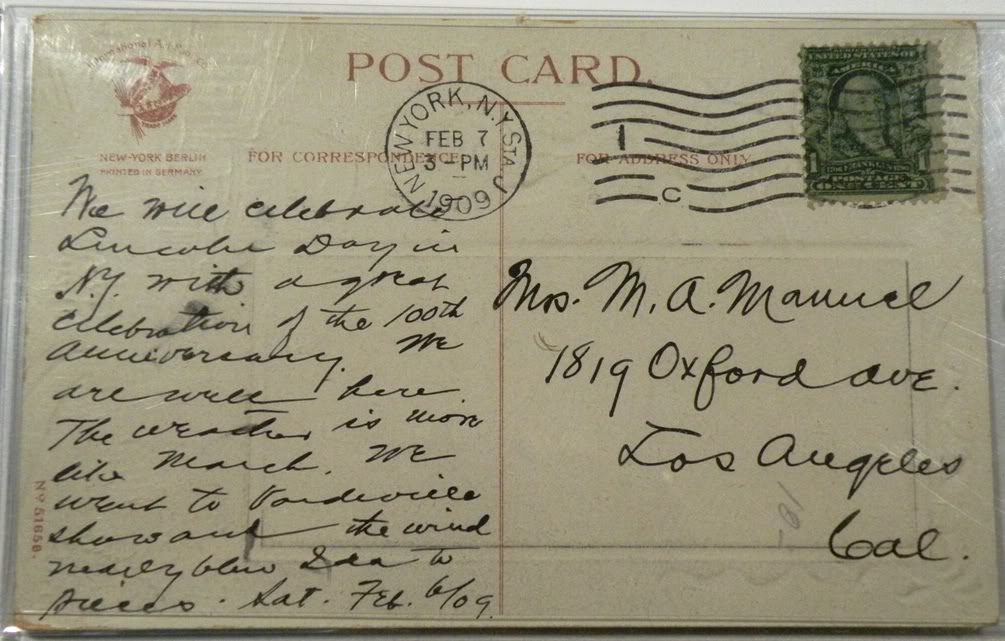 International Art Pub. Co.
POST CARD.
UNITED STATES OF
AMERICA
1 1
POSTAGE
ONE CENT
NEW YORK, N.Y. STA J
FEB 7
3 - PM
1909
1
C
NEW-YORK BERLIN
PRINTED IN GERMANY
FOR CORRESPONDENCE
FOR ADDRESS ONLY
We will celebrate
Lincoln Day in
N.Y. with a great
celebration of the 100th
anniversary. We
are well here.
The weather is more
like March. We
went to Vaudeville
show and the wind
nearly blew Ida to
pieces. Sat. Feb. 6/09.
Mrs. M. A. Manuel
1819 Oxford ave.
Los Angeles
Cal.
No 51658.